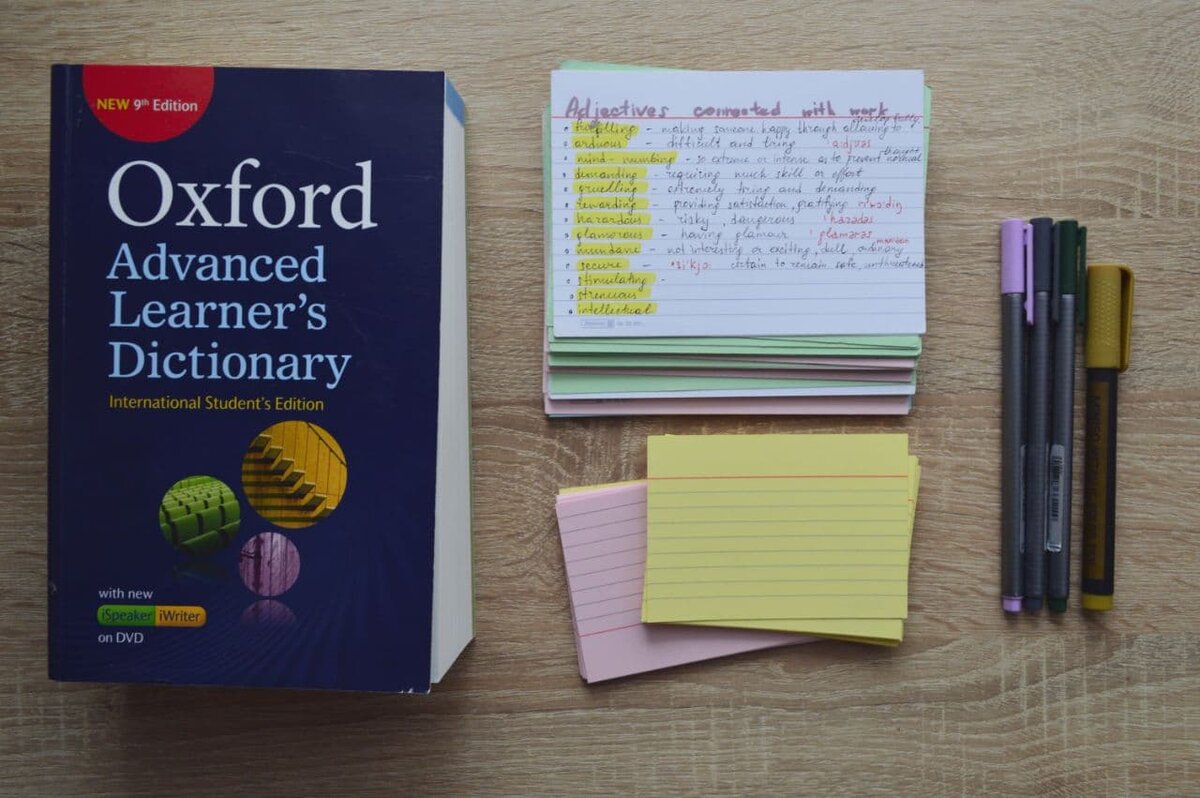 NEW 9th Edition
Oxford
Advanced
Learner's
Dictionary
International Student's Edition
with new
iSpeaker iWriter
on DVD
Adjectives connected with work
making someone happy through allowing to develop fully
arduous - difficult and tiring
mind-numbing - so extreme or intense as to prevent normal thought
demanding - requiring much skill or effort
gruelling - extremely tiring and demanding
rewarding - providing satisfaction, gratifying
hazardous - risky, dangerous
glamorous - having glamour
mundane - not interesting or exciting, dull, ordinary
secure - certain to remain safe,
stimulating -
strenuous
intellectual